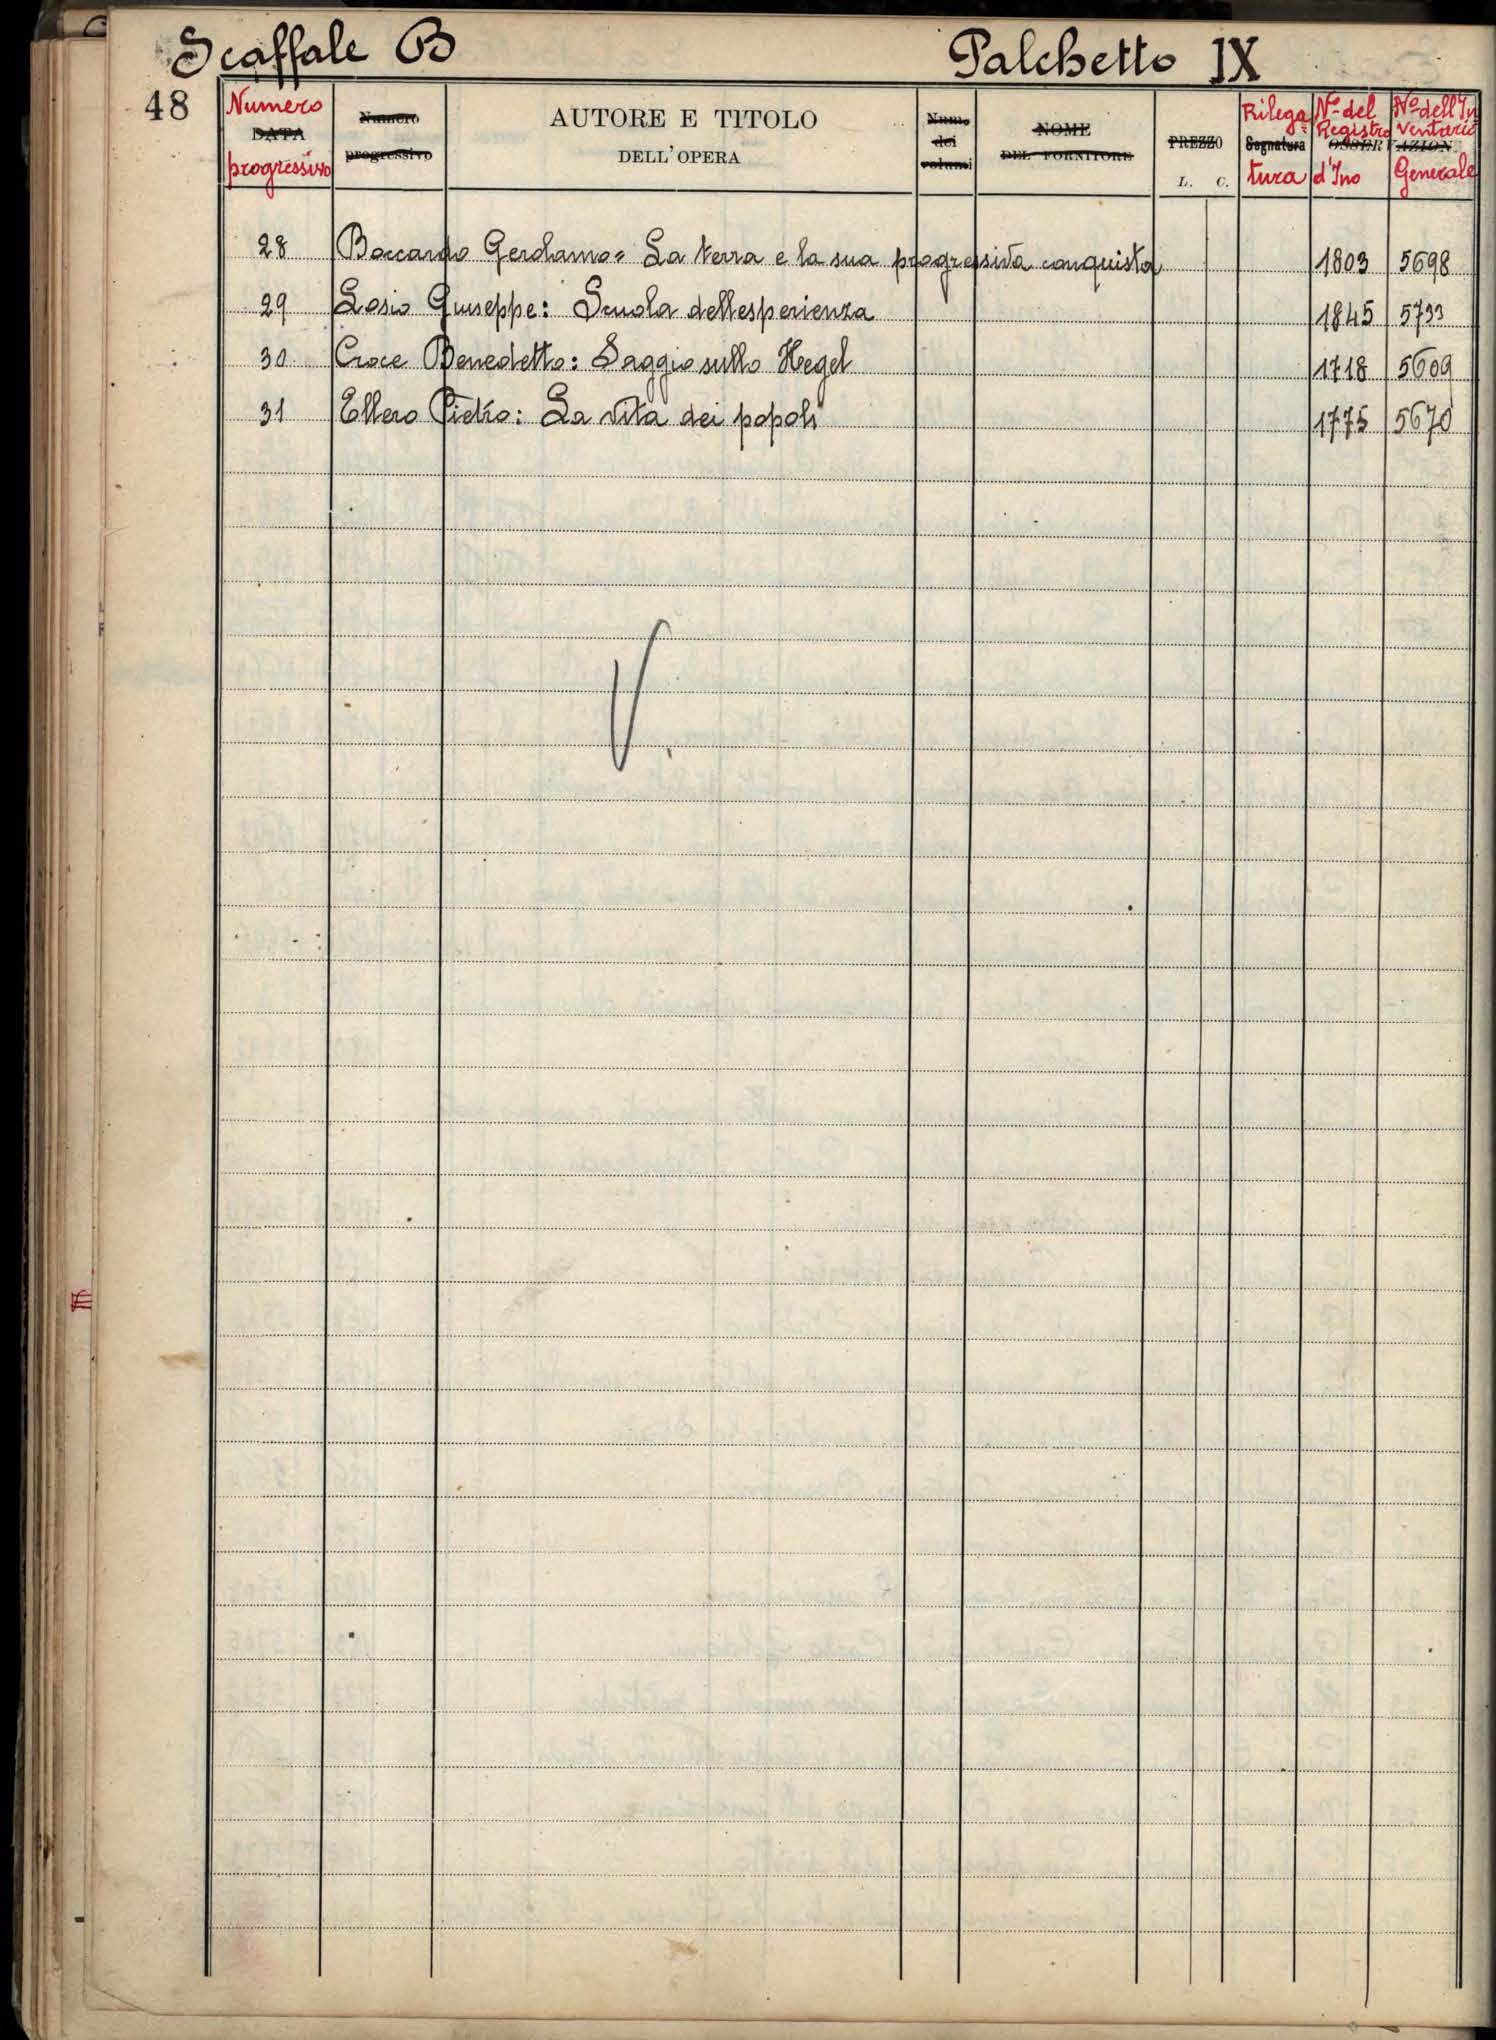 Scaffale B Palchetto IX
48
Numero DATA progressivo
Numero progressivo
AUTORE E TITOLO
DELL'OPERA
Nume dei volumi
NOME
DEL FORNITORE
PREZZO
L. C.
Rilega= Segnatura tura
No. del Registro d'Ino
No. dell'Inventario Generale
OSSERVAZION
28 Boccardo Gerolamo= La terra e la sua progressiva conquista 1803 5698
29 Losio Giuseppe: Scuola dell'esperienza 1845 5733
30 Croce Benedetto: Saggio sullo Hegel 1718 5609
31 Ellero Pietro: La vita dei popoli 1775 5670
V